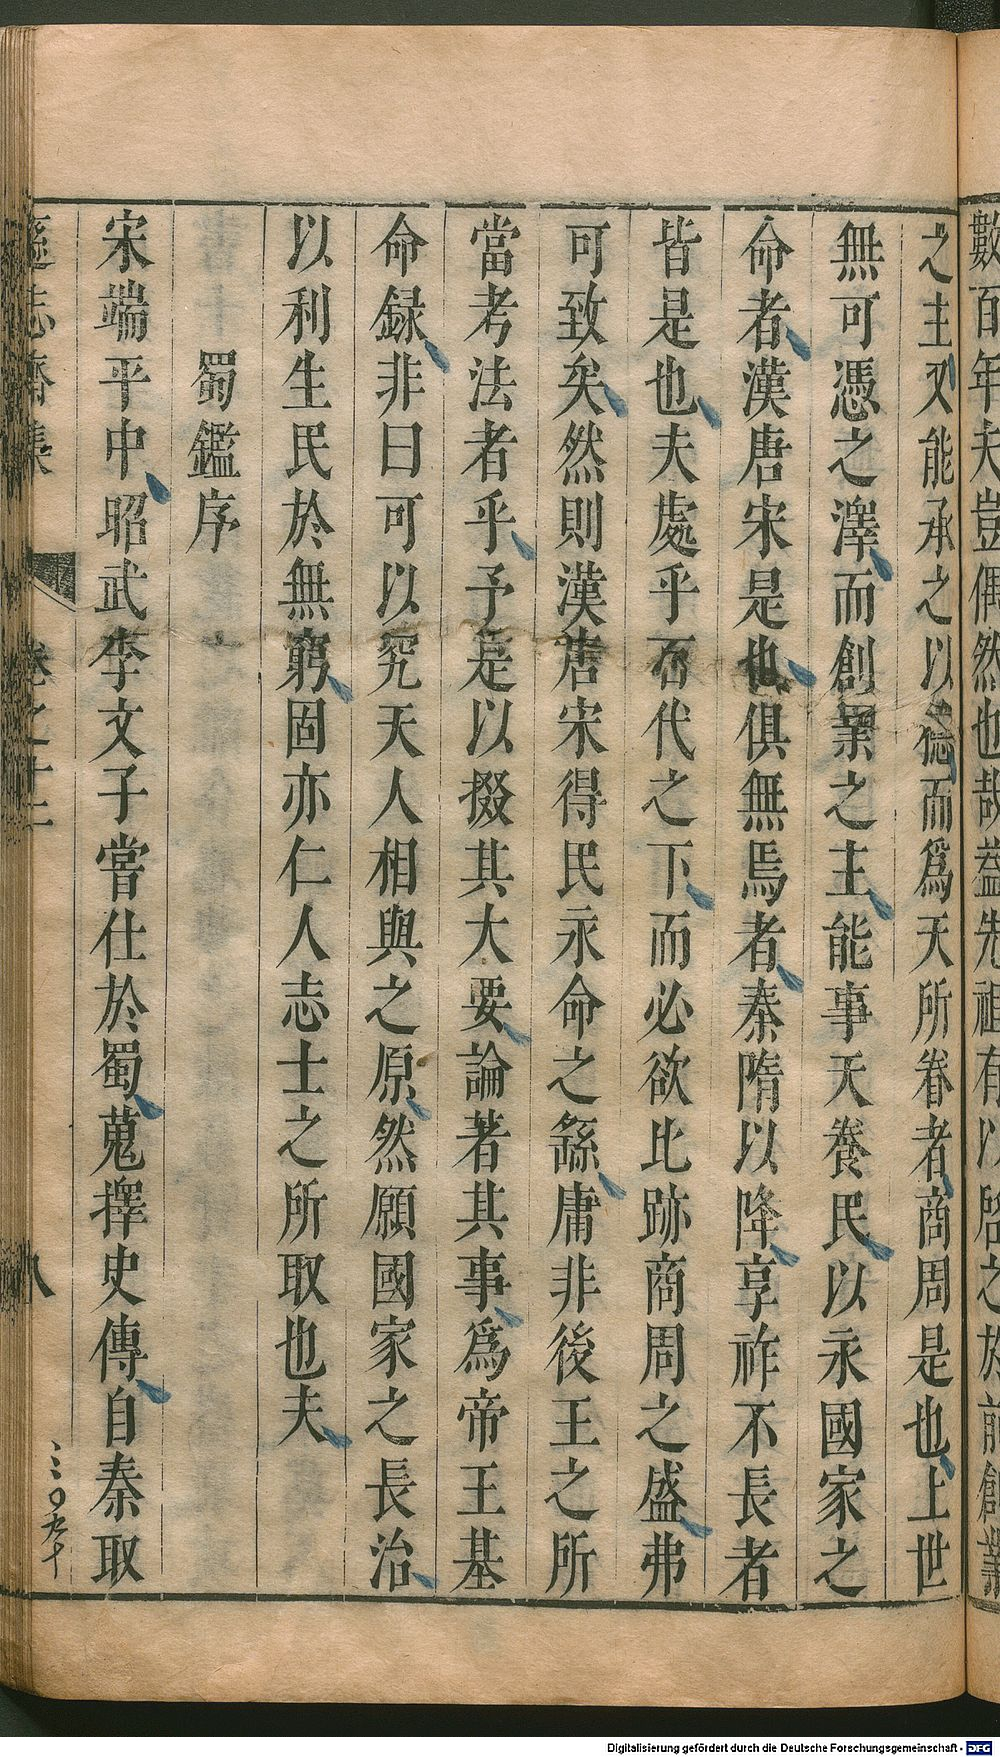 數百年夫豈偶然也哉葢先祖有以啓之於前創業
之主又能承之以德而爲天所眷者商周是也上世
無可憑之澤而創業之主能事天養民以永國家之
命者漢唐宋是也俱無焉者秦隋以降享祚不長者
皆是也夫處乎百代之下而必欲比跡商周之盛弗
可致矣然則漢唐宋得民永命之繇庸非後王之所
當考法者乎予是以掇其大要論著其事爲帝王基
命録非曰可以究天人相與之原然願國家之長治
以利生民於無窮固亦仁人志士之所取也夫
蜀鑑序
宋端平中昭武李文子嘗仕於蜀蒐擇史傳自秦取
遜志齋集
卷之十二
八
三〇九十
Digitalisierung gefördert durch die Deutsche Forschungsgemeinschaft - DFG